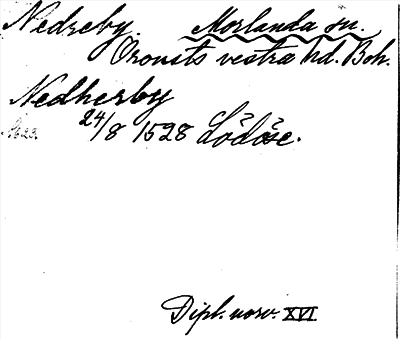 Nedreby. Morlanda sn.
Orousts vestra hd. Boh.
Nedherby
24/8 1528 Lödöse.
Dipl. norv. XVI